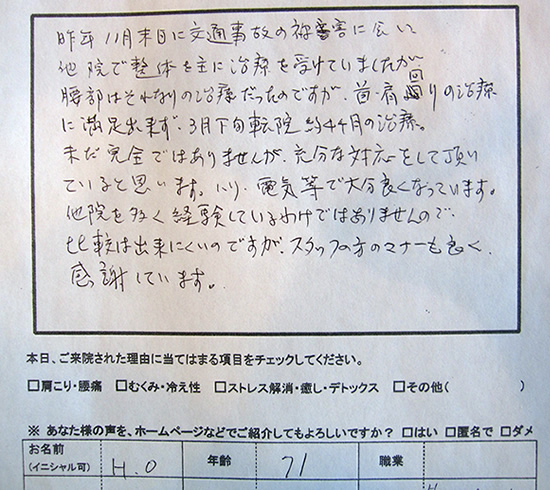 昨年11月末日に交通事故の被害に会い
他院で整体を主に治療を受けていましたが
腰部はそれなりの治療だったのですが、首・肩回りの治療
に満足出来ず、3月下旬転院 約4ヶ月の治療。
未だ完全ではありませんが、充分な対応をして頂い
ていると思います。ハリ、電気等で大分良くなっています。
他院を多く経験しているわけではありませんので、
比較は出来にくいのですが、スタッフの方のマナーも良く、
感謝しています。
本日、ご来院された理由に当てはまる項目をチェックしてください。
□肩こり・腰痛 □むくみ・冷え性 □ストレス解消・癒し・デトックス □その他( )
※ あなた様の声を、ホームページなどでご紹介してもよろしいですか? □はい □匿名で □ダメ
お名前 (イニシャル可) H.O 年齢 71 職業